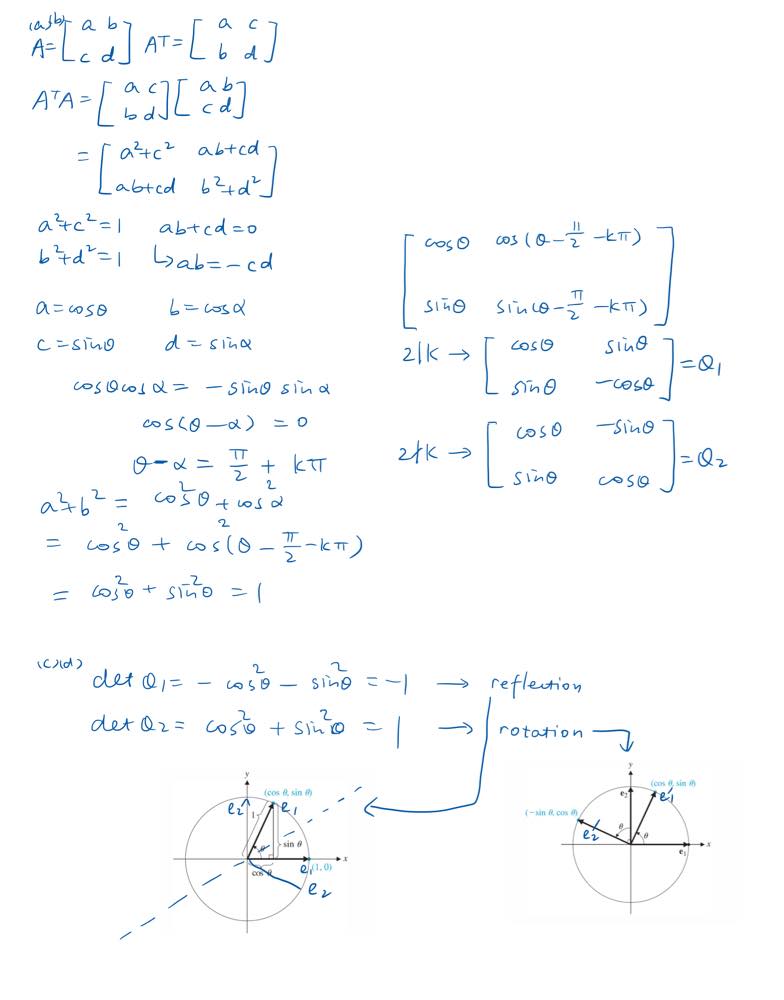 (a)(b)
A = [ a b ; c d ] Aᵀ = [ a c ; b d ]
AᵀA = [ a c ; b d ] [ a b ; c d ]
= [ a²+c² ab+cd ; ab+cd b²+d² ]
a²+c²=1 ab+cd=0
b²+d²=1 ↳ ab=-cd
a=cosθ b=cosα
c=sinθ d=sinα
cosθcosα = -sinθ sinα
cos(θ-α) = 0
θ-α = π/2 + kπ
a²+b² = cos²θ + cos²α
= cos²θ + cos²(θ - π/2 - kπ)
= cos²θ + sin²θ = 1
[ cosθ cos(θ - π/2 - kπ) ; sinθ sin(θ - π/2 - kπ) ]
2|k → [ cosθ sinθ ; sinθ -cosθ ] = Q₁
2∤k → [ cosθ -sinθ ; sinθ cosθ ] = Q₂
(c)(d)
det Q₁ = - cos²θ - sin²θ = -1 → reflection
det Q₂ = cos²θ + sin²θ = 1 → rotation
y
(cos θ, sin θ)
e₂ e₁
1
θ sin θ
x
cos θ e₁ (1, 0)
e₂
y
(cos θ, sin θ)
e₂ e₁'
(-sin θ, cos θ)
e₂' θ θ
x
e₁